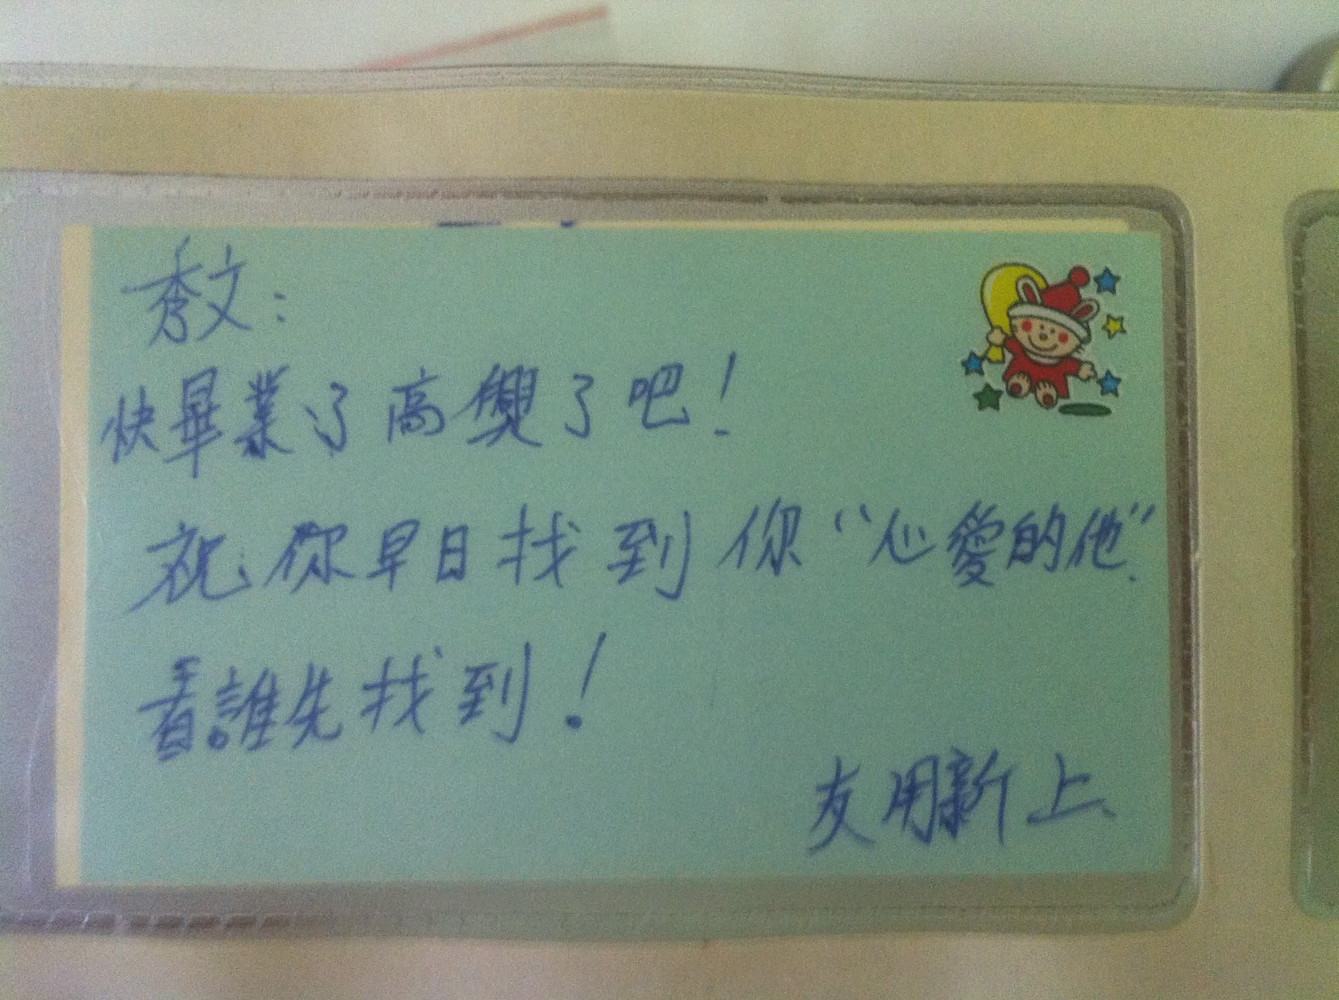 秀文：
快畢業了高興了吧！
祝你早日找到你“心愛的他”.
看誰先找到！
友用新上